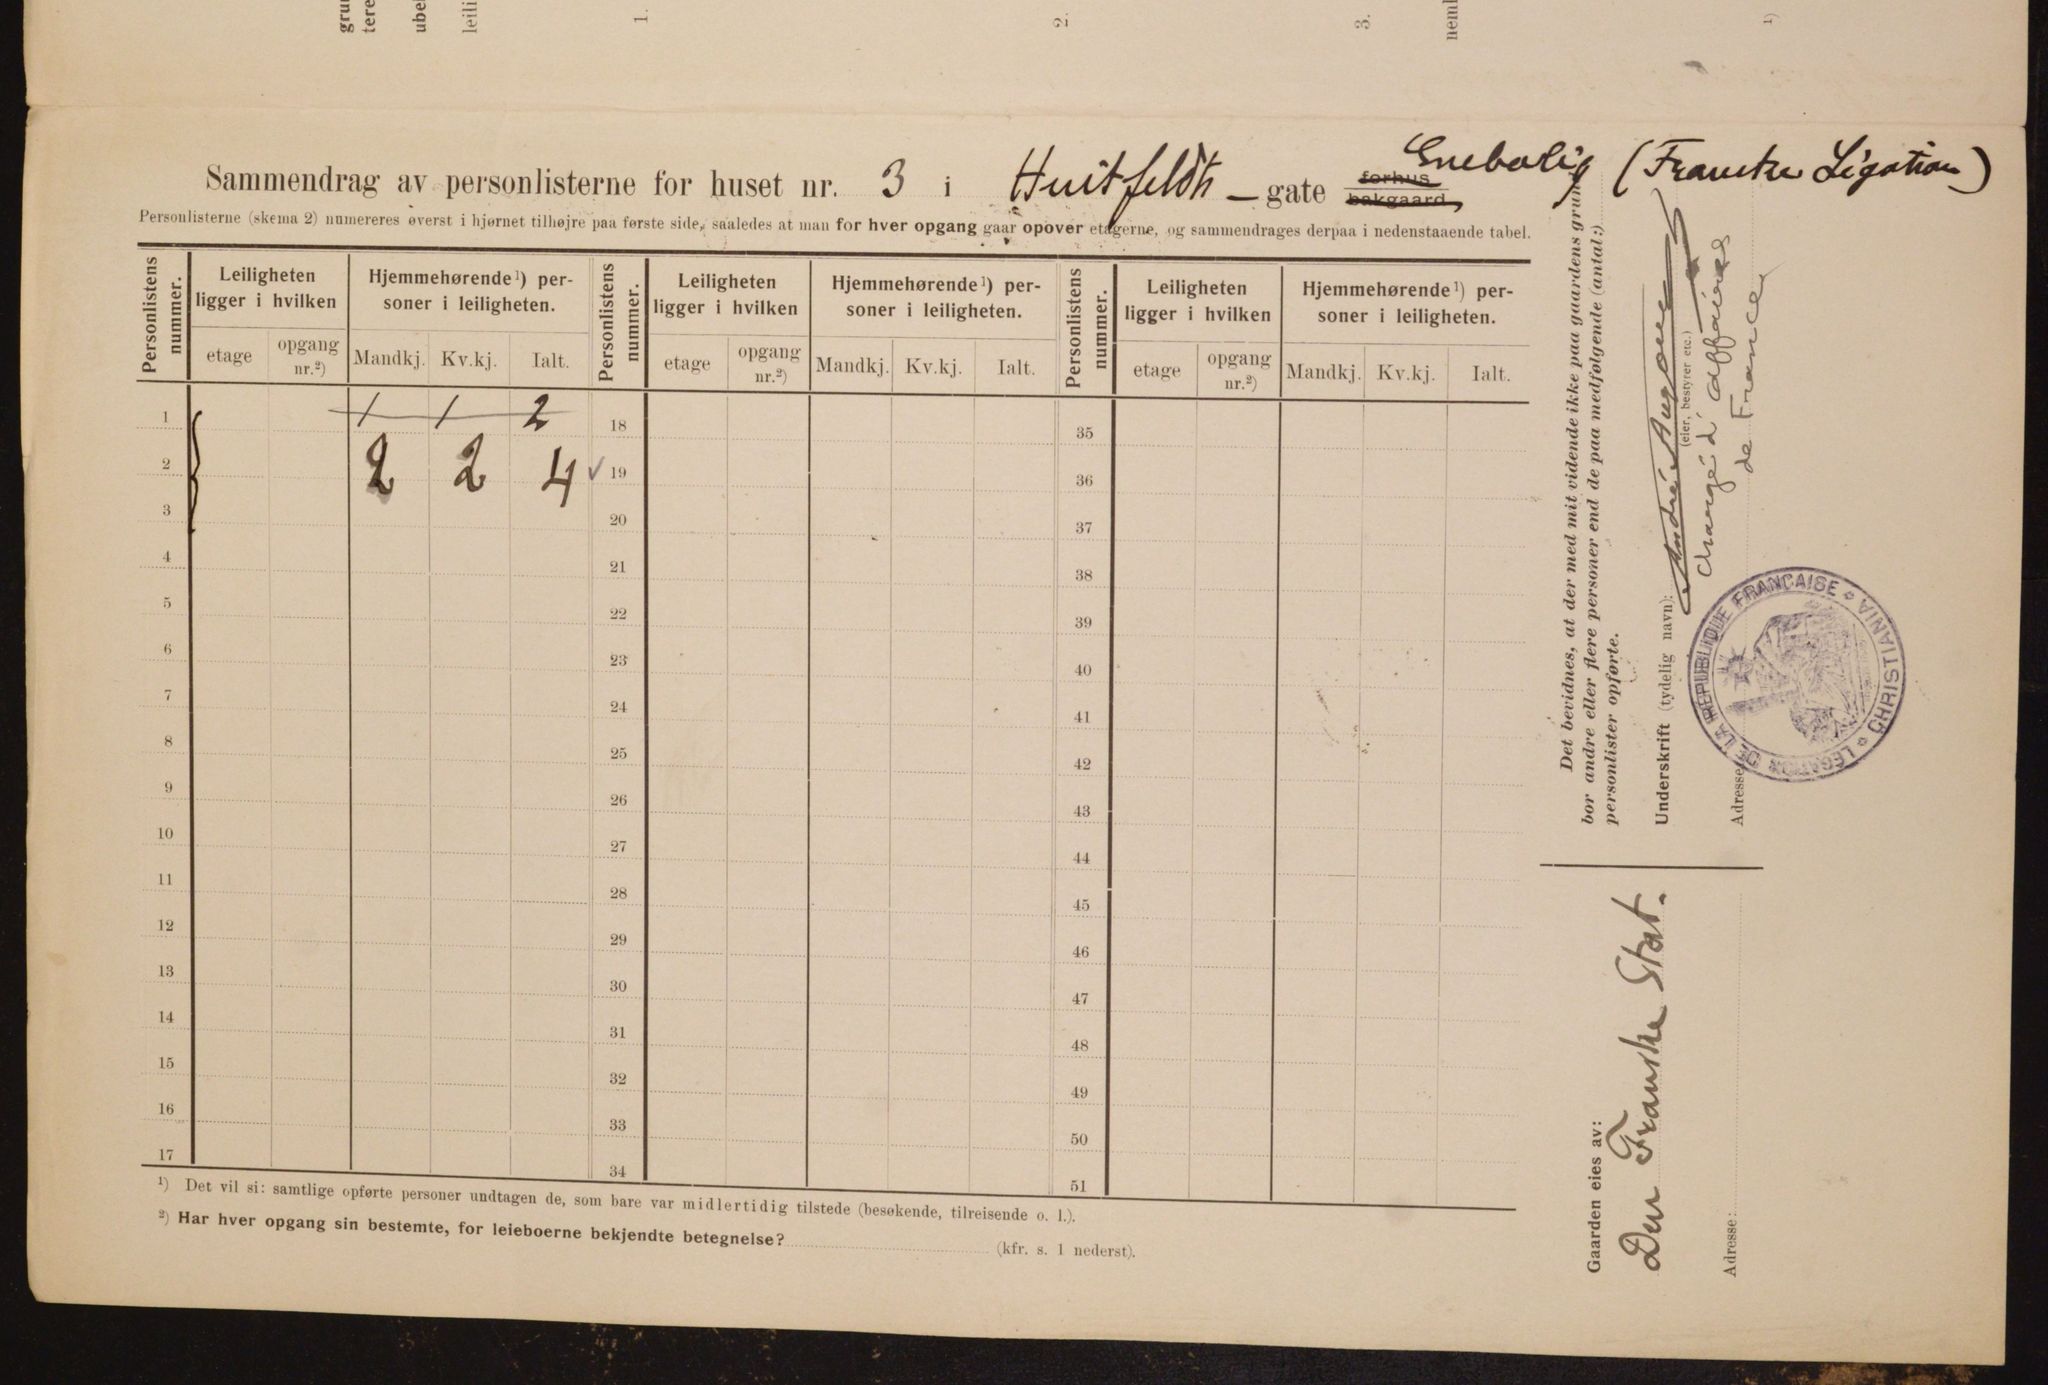 grun
tere
ube
leili
1.
2.
3.
neml
1)
Sammendrag av personlisterne for huset nr. 3 i Huitfeldts – gate forhus bakgaard Enebolig (Franske Legation)
Personlisterne (skema 2) numereres øverst i hjørnet tilhøjre paa første side, saaledes at man for hver opgang gaar opover etagerne, og sammendrages derpaa i nedenstaaende tabel.
Personlistens nummer. Leiligheten ligger i hvilken Hjemmehørende ¹) personer i leiligheten. Personlistens nummer. Leiligheten ligger i hvilken Hjemmehørende ¹) personer i leiligheten. Personlistens nummer. Leiligheten ligger i hvilken Hjemmehørende ¹) personer i leiligheten.
etage opgang nr.²) Mandkj. Kv.kj. Ialt. etage opgang nr.²) Mandkj. Kv.kj. Ialt. etage opgang nr.²) Mandkj. Kv.kj. Ialt.
1 1 1 2 18 35
2 2 2 4 19 36
3 20 37
4 21 38
5 22 39
6 23 40
7 24 41
8 25 42
9 26 43
10 27 44
11 28 45
12 29 46
13 30 47
14 31 48
15 32 49
16 33 50
17 34 51
¹) Det vil si: samtlige opførte personer undtagen de, som bare var midlertidig tilstede (besøkende, tilreisende o. l.).
²) Har hver opgang sin bestemte, for leieboerne bekjendte betegnelse? (kfr. s. 1 nederst).
Det bevidnes, at der med mit vidende ikke paa gaardens grun
bor andre eller flere personer end de paa medfølgende (antal:)
personlister opførte.
Underskrift (tydelig navn): André
(eier, bestyrer etc.)
chargé d'affaires
de France
Adresse
LÉGATION DE LA RÉPUBLIQUE FRANÇAISE CHRISTIANIA
Gaarden eies av:
Den Franske Stat.
Adresse: